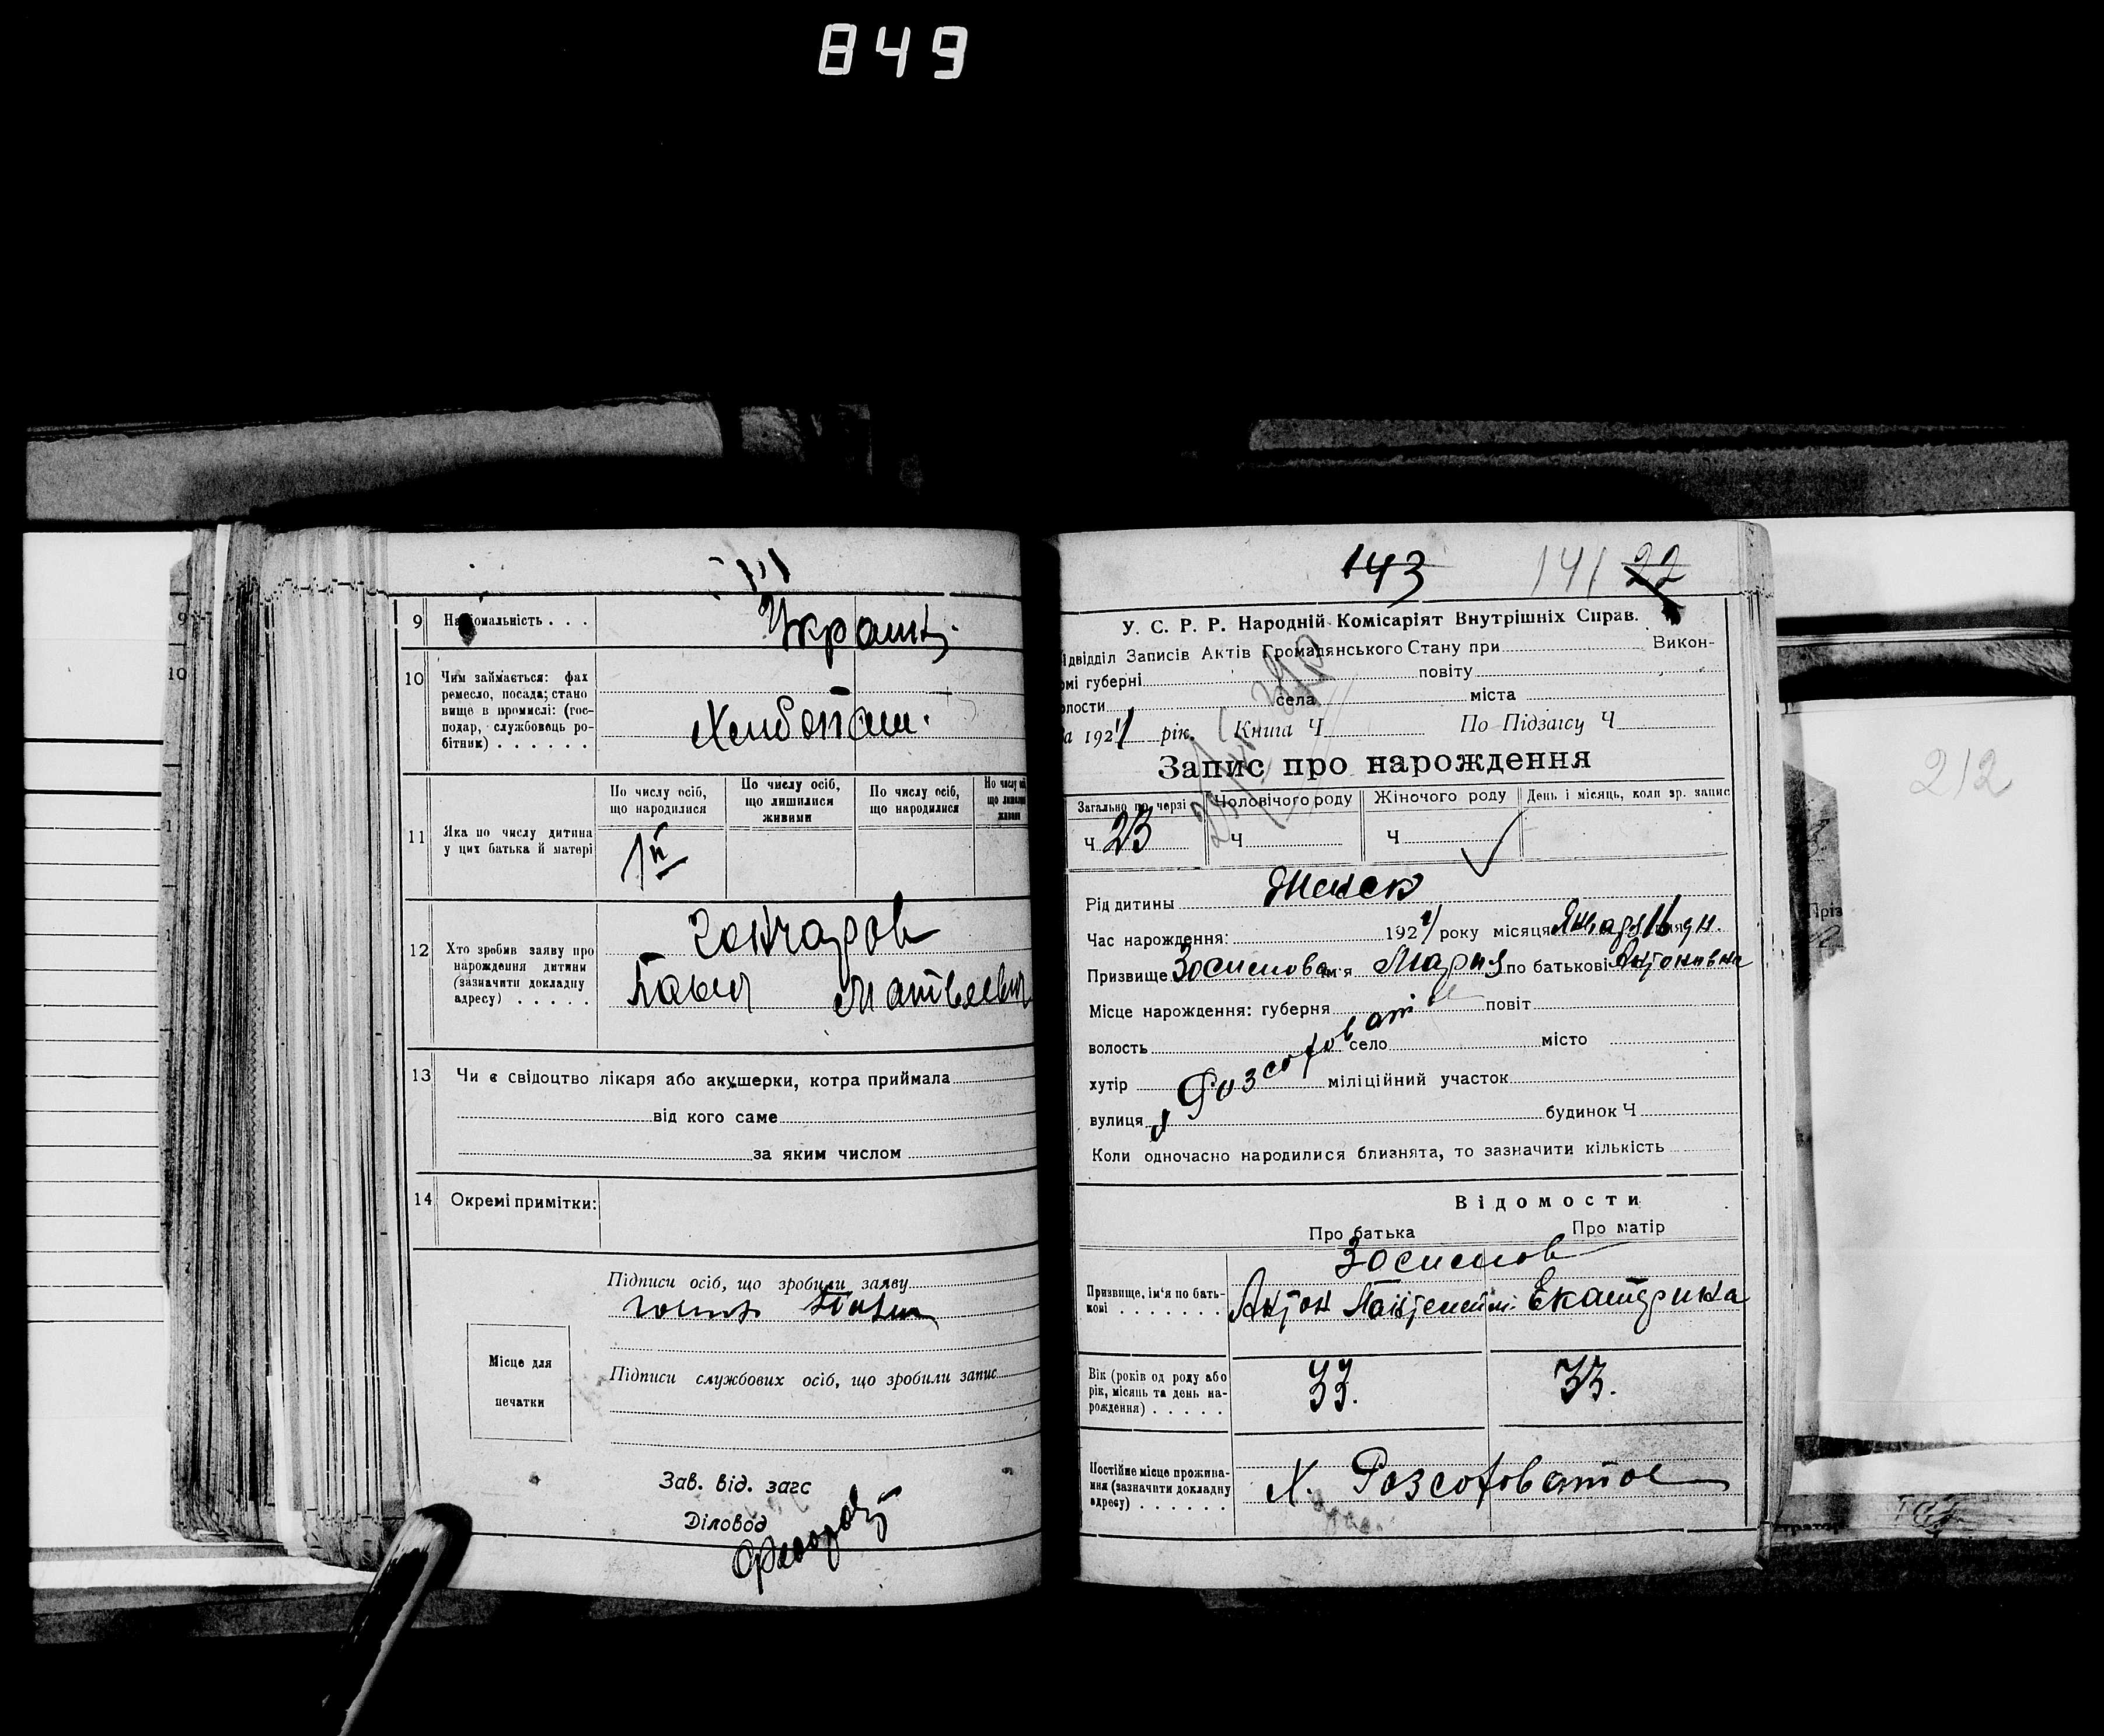 849
9 Національність . . .
Украин.
10 Чим займається: фах
ремесло, посада; стано
вище в промислі: (гос-
подар, службовець ро-
бітник) . . . . . .
Хлебопаш.
11 Яка по числу дитина
у цих батька й матері
По числу осіб,
що народилися
По числу осіб,
що лишилися
живими
По числу осіб,
що народилися
1й
12 Хто зробив заяву про
нарождення дитини
(зазначити докладну
адресу) . . . . .
Гончаров
Павел Матвеевич
13 Чи є свідоцтво лікаря або акушерки, котра приймала
від кого саме
за яким числом
14 Окремі примітки:
Підписи осіб, що зробили заяву
Місце для
печатки
Підписи службових осіб, що зробили запис
Зав. від. загс
Діловод
143 141 22
У. С. Р. Р. Народній Комісаріят Внутрішніх Справ.
ідвідділ Записів Актів Громадянського Стану при Викон-
омі губерні повіту
олости села міста
а 1921 рік. Книга Ч По Підзагсу Ч
Запис про нарождення
Загально по черзі Чоловічого роду Жіночого роду День і місяць, коли зр. запис
Ч 23 Ч Ч
Рід дитини Женск
Час нарождення: 1921 року місяця Января 16 дня
Призвище Зосимова ім'я Мария по батькові Антоновна
Місце нарождення: губерня повіт
волость село місто
хутір Розсоховатое міліційний участок
вулиця будинок Ч
Коли одночасно народилися близнята, то зазначити кількість
Відомости
Про батька Про матір
Зосимов
Призвище, ім'я по бать-
кові . . . . . . .
Антон Екатерина
Вік (років од роду або
рік, місяць та день на-
рождення) . . . . .
33. 33.
Постійне місце прожива-
ння (зазначити докладну
адресу) . . . . . . .
Х. Розсоховатое
212